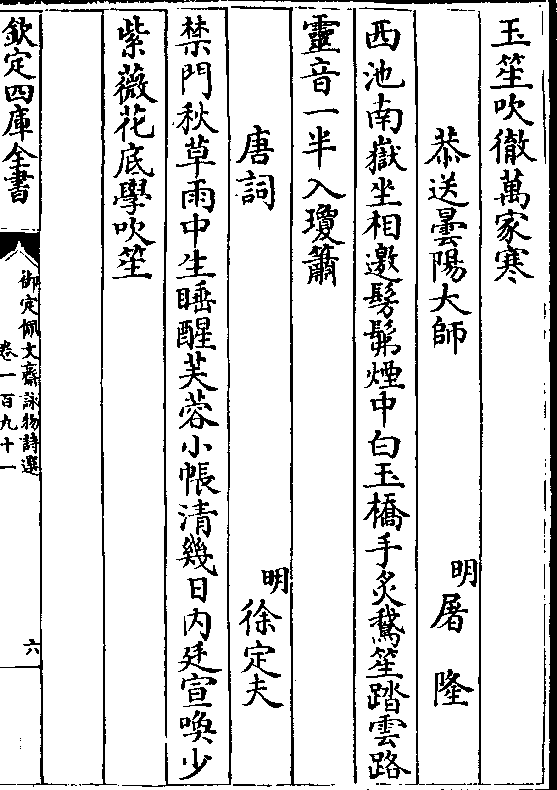 玉笙吹徹萬家寒
恭送曇陽大師 明 屠隆
西池南嶽坐相邀髣髴煙中白玉橋手炙鵞笙踏雲路
靈音一半入瓊簫
唐詞 明 徐定夫
禁門秋草雨中生睡醒芙蓉小帳清幾日内廷宣喚少
紫薇花底學吹笙
欽定四庫全書
御定佩文齋詠物詩選
卷一百九十一
六